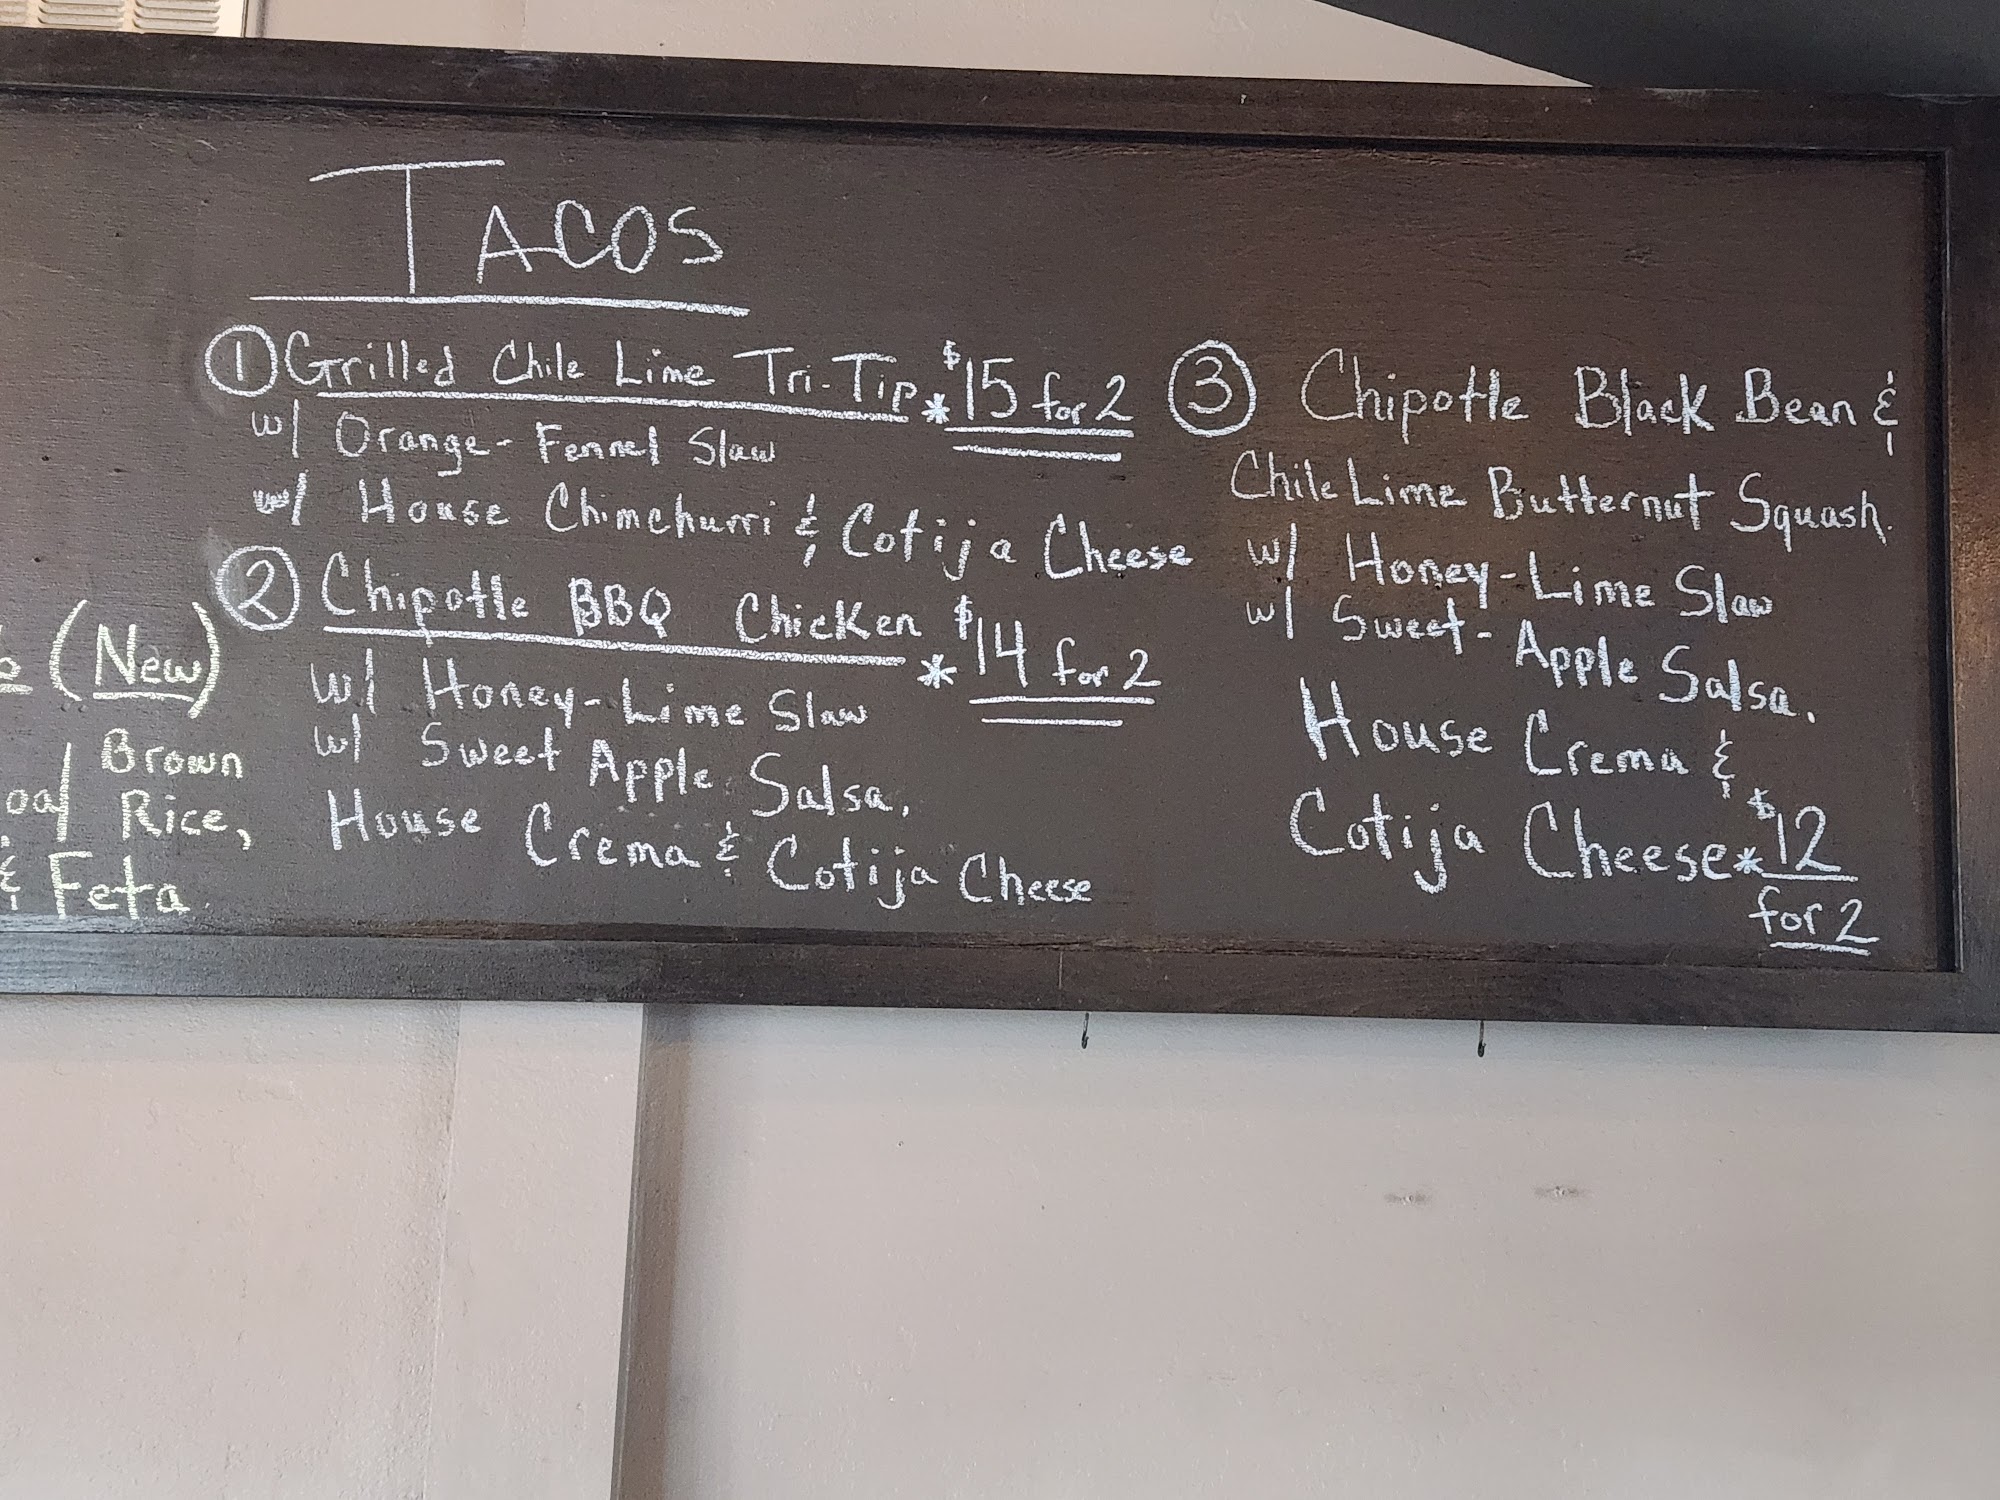 TACOS
① Grilled Chile Lime Tri-Tip * $15 for 2
w/ Orange-Fennel Slaw
w/ House Chimchurri & Cotija Cheese
② Chipotle BBQ Chicken * $14 for 2
w/ Honey-Lime Slaw
w/ Sweet Apple Salsa,
House Crema & Cotija Cheese
③ Chipotle Black Bean &
Chile Lime Butternut Squash.
w/ Honey-Lime Slaw
w/ Sweet-Apple Salsa,
House Crema &
Cotija Cheese * $12
for 2
(New)
Brown
Rice,
& Feta